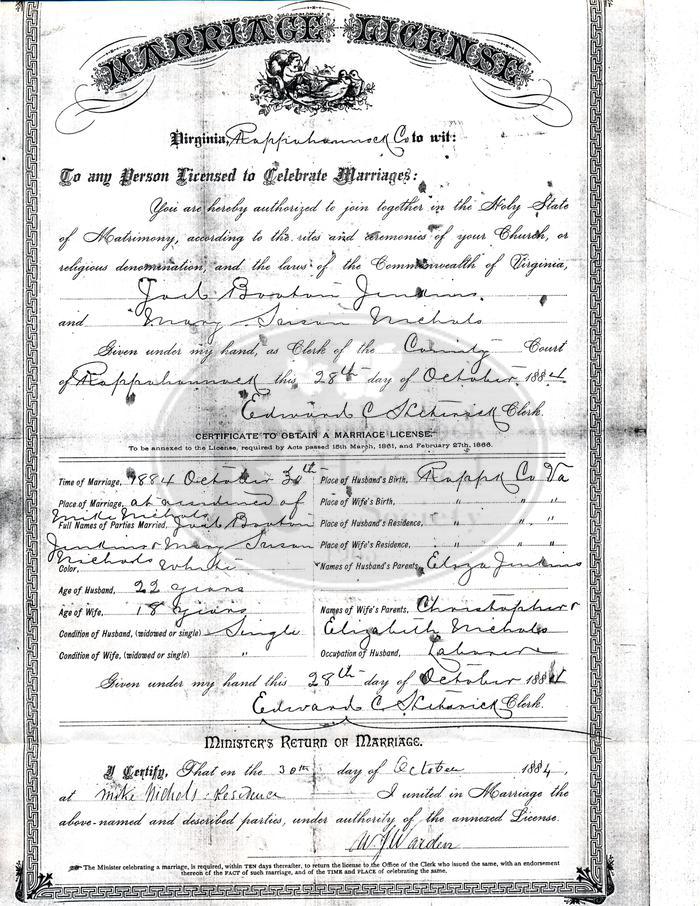 MARRIAGE LICENSE
Virginia, Rappahannock Co to wit:
To any Person Licensed to Celebrate Marriages:
You are hereby authorized to join together in the Holy State
of Matrimony, according to the rites and ceremonies of your Church, or
religious denomination, and the laws of the Commonwealth of Virginia,
Joel Jenkins
and Mary Susan Nichols
Given under my hand, as Clerk of the County Court
of Rappahannock this 28th day of October 1884
Edward C Clerk.
CERTIFICATE TO OBTAIN A MARRIAGE LICENSE.
To be annexed to the License, required by Acts passed 15th March, 1861, and February 27th, 1866.
Time of Marriage, 1884 October 30th
Place of Marriage, at residence of
Mike Nichols
Full Names of Parties Married, Joel
Jenkins & Mary Susan
Nichols
Color, White
Age of Husband, 22 years
Age of Wife, 18 years
Condition of Husband, (widowed or single) Single
Condition of Wife, (widowed or single) "
Place of Husband's Birth, Rappk Co Va
Place of Wife's Birth, " " "
Place of Husband's Residence, " " "
Place of Wife's Residence, " " "
Names of Husband's Parents, Eliza Jenkins
Names of Wife's Parents, Christopher &
Elizabeth Nichols
Occupation of Husband, Laborer
Given under my hand this 28th day of October 1884
Edward C Clerk.
MINISTER'S RETURN OF MARRIAGE.
I Certify, That on the 30th day of October 1884,
at Mike Nichols Residence I united in Marriage the
above-named and described parties, under authority of the annexed License.
W. J. Warden
The Minister celebrating a marriage, is required, within TEN days thereafter, to return the license to the Office of the Clerk who issued the same, with an endorsement
thereon of the FACT of such marriage, and of the TIME and PLACE of celebrating the same.